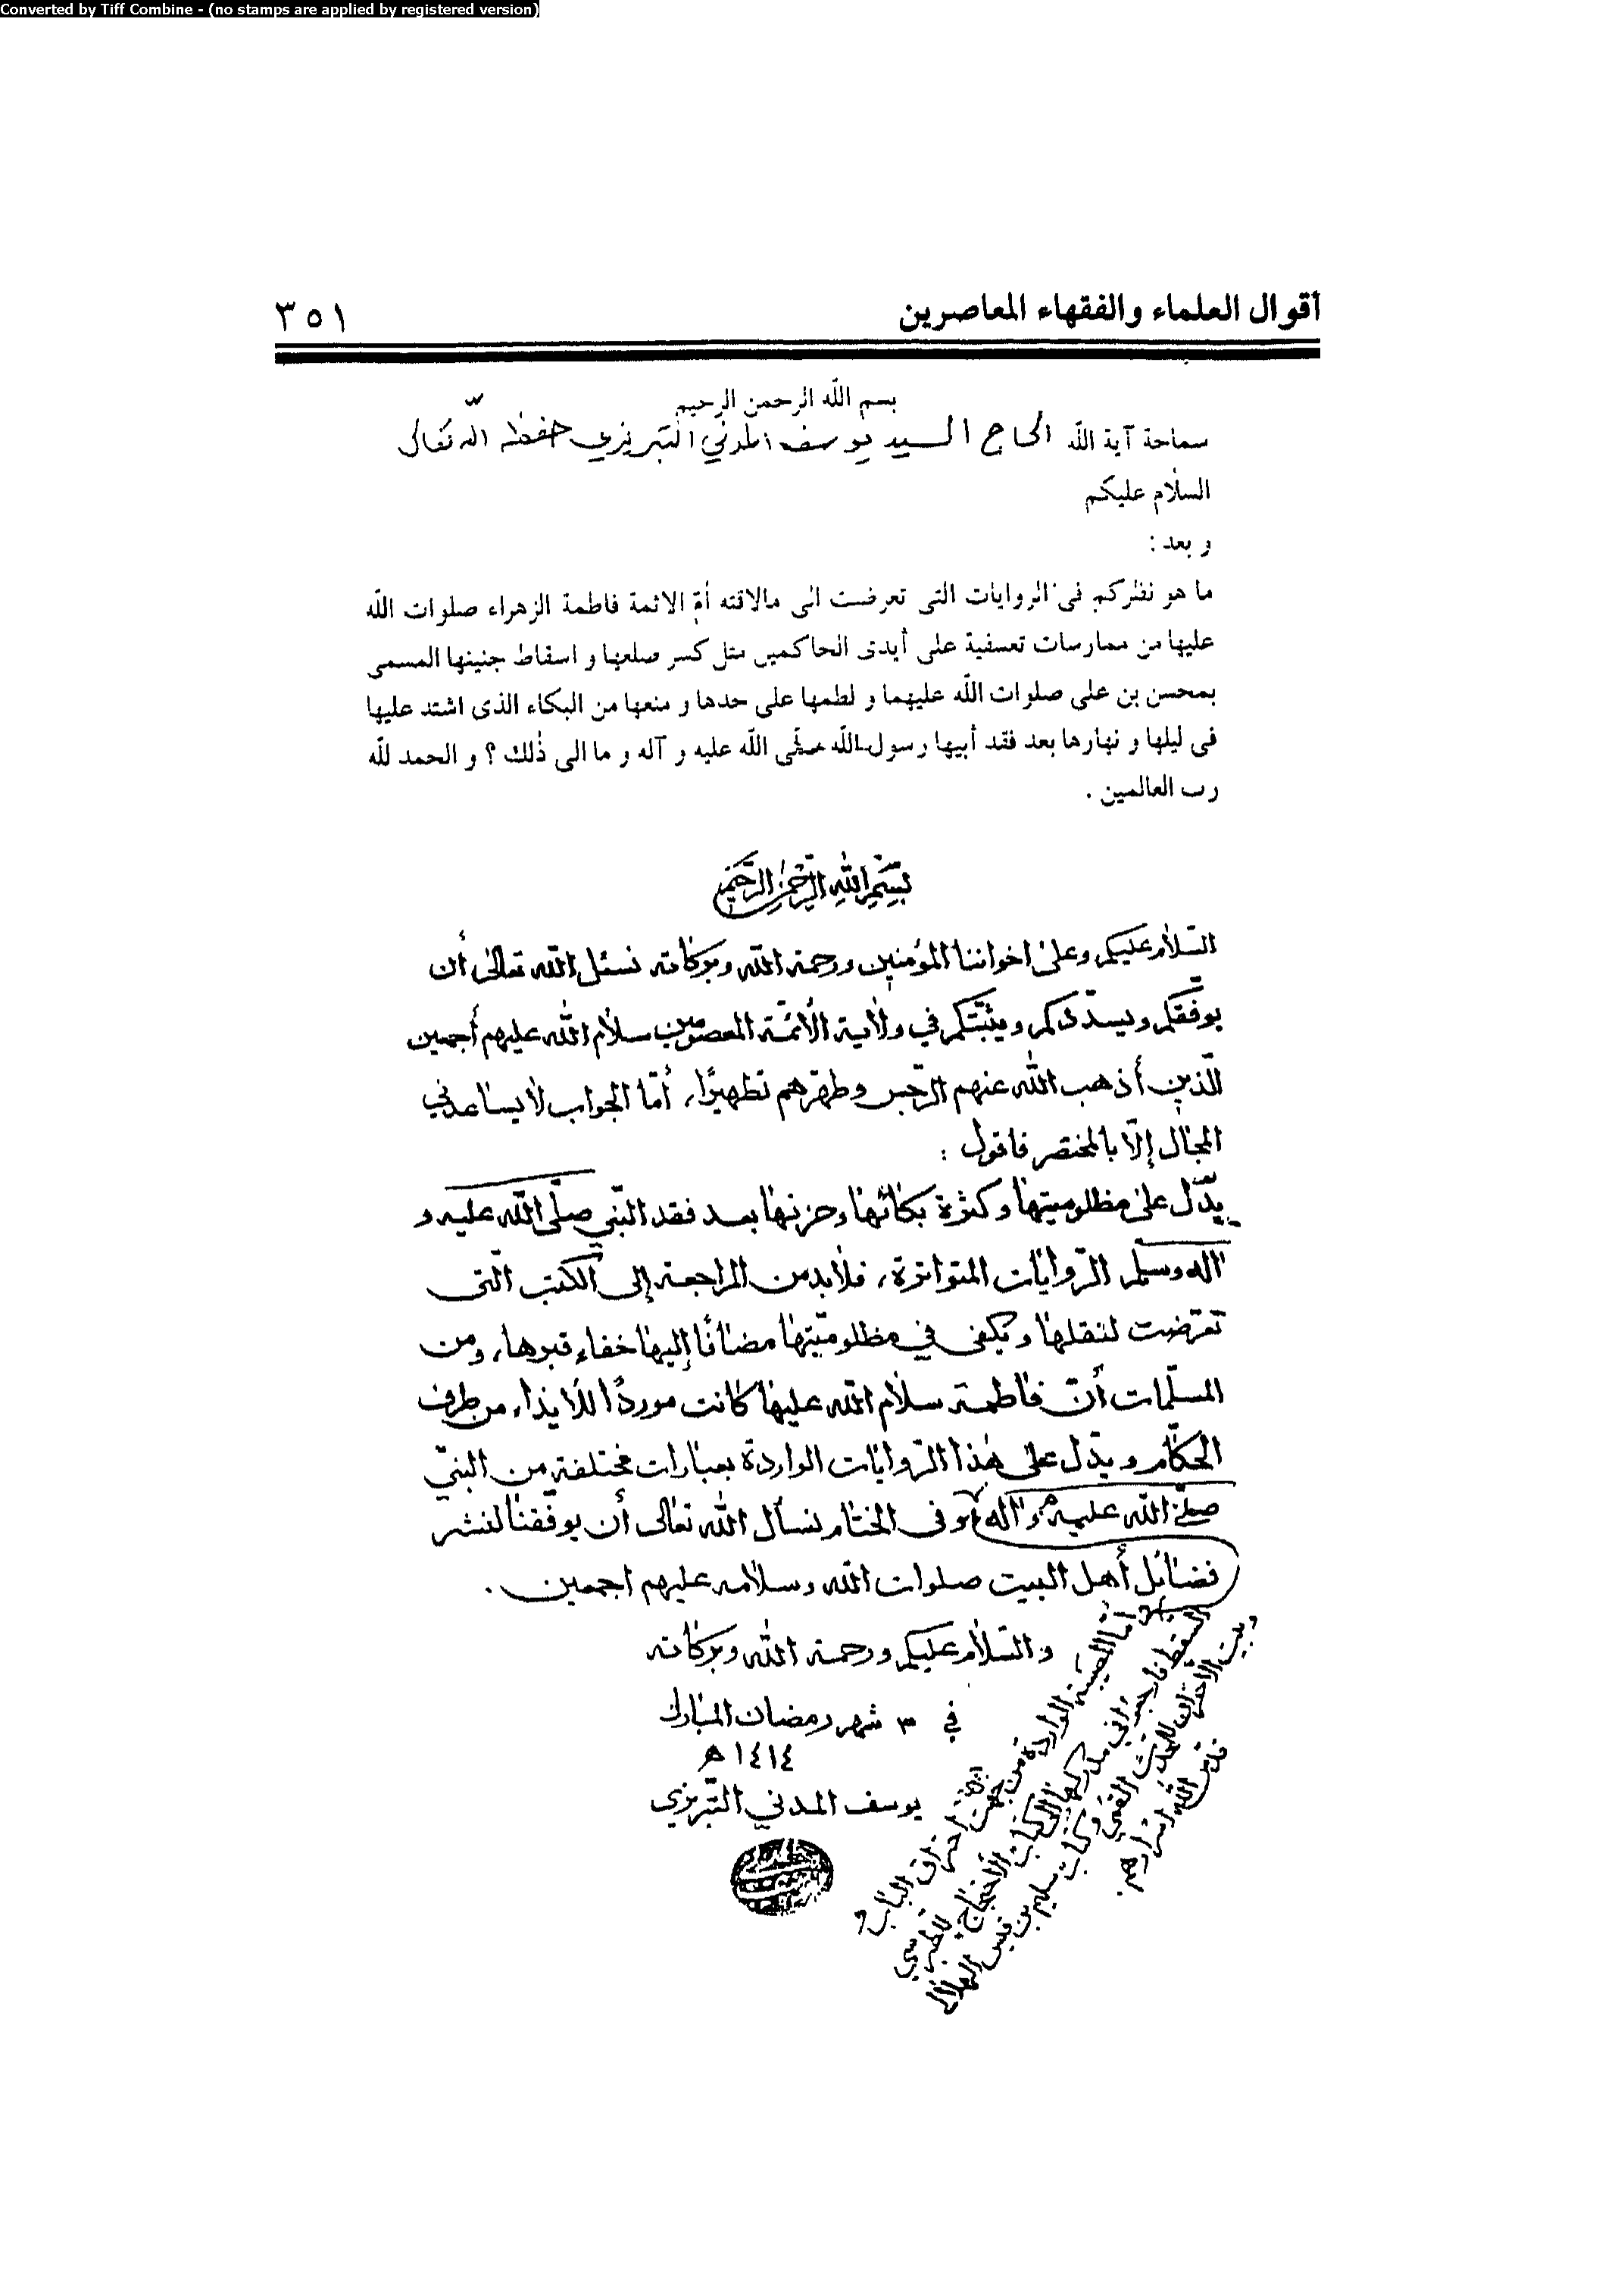 Converted by Tiff Combine - (no stamps are applied by registered version)
أقوال العلماء والفقهاء المعاصرين
٣٥١
بسم الله الرحمن الرحيم
سماحة آية الله الحاج السيد يوسف المدني التبريزي حفظه الله تعالى
السلام عليكم
و بعد :
ما هو نظركم فى الروايات التى تعرضت الى مالاقته أم الائمة فاطمة الزهراء صلوات الله
عليها من ممارسات تعسفية على أيدى الحاكمين مثل كسر ضلعها و اسقاط جنينها المسمى
بمحسن بن على صلوات الله عليهما و لطمها على خدها و منعها من البكاء الذى اشتد عليها
فى ليلها و نهارها بعد فقد أبيها رسول الله صلّى الله عليه و آله و ما الى ذلك ؟ و الحمد لله
رب العالمين .
بسم الله الرحمن الرحيم
السّلام عليكم وعلى اخواننا المؤمنين ورحمة الله وبركاته نسئل الله تعالى أن
يوفّقكم ويسدّدكم ويثبّتكم في ولاية الأئمّة المعصومين سلام الله عليهم أجمعين
الّذين أذهب الله عنهم الرّجس وطهّرهم تطهيرًا، أمّا الجواب لا يساعدني
المجال إلّا بالمختصر فاقول :
يدّل على مظلوميتها وكثرة بكائها وحزنها بعد فقد النّبي صلّى الله عليه و
اله وسلّم الرّوايات المتواترة، فلابد من المراجعة إلى الكتب الّتى
تعرّضت لنقلها ويكفى في مظلوميّتها مضافًا إليها خفاء قبرها، ومن
المسلّمات أنّ فاطمة سلام الله عليها كانت موردًا للأيذاء من طرف
الحكّام ويدّل على هذا الرّوايات الواردة بعبارات مختلفة من النبيّ
صلّى الله عليه واله وفى الختام نسأل الله تعالى أن يوفّقنا لنشر
فضائل أهل البيت صلوات الله وسلامه عليهم اجمعين .
والسّلام عليكم ورحمة الله وبركاته
في ٣ شهر رمضان المبارك
١٤١٤ ه
يوسف المدني التّبريزي
أمّا المصيبة الواردة من جهت احتراق الباب و
السقط فارجع إلى مداركها الى كتاب الأحتجاج للطبرسي
وبيت الأحزان للمحدّث القمّي وكتاب سليم بن قيس الهلالي
قدّس الله اسرارهم.